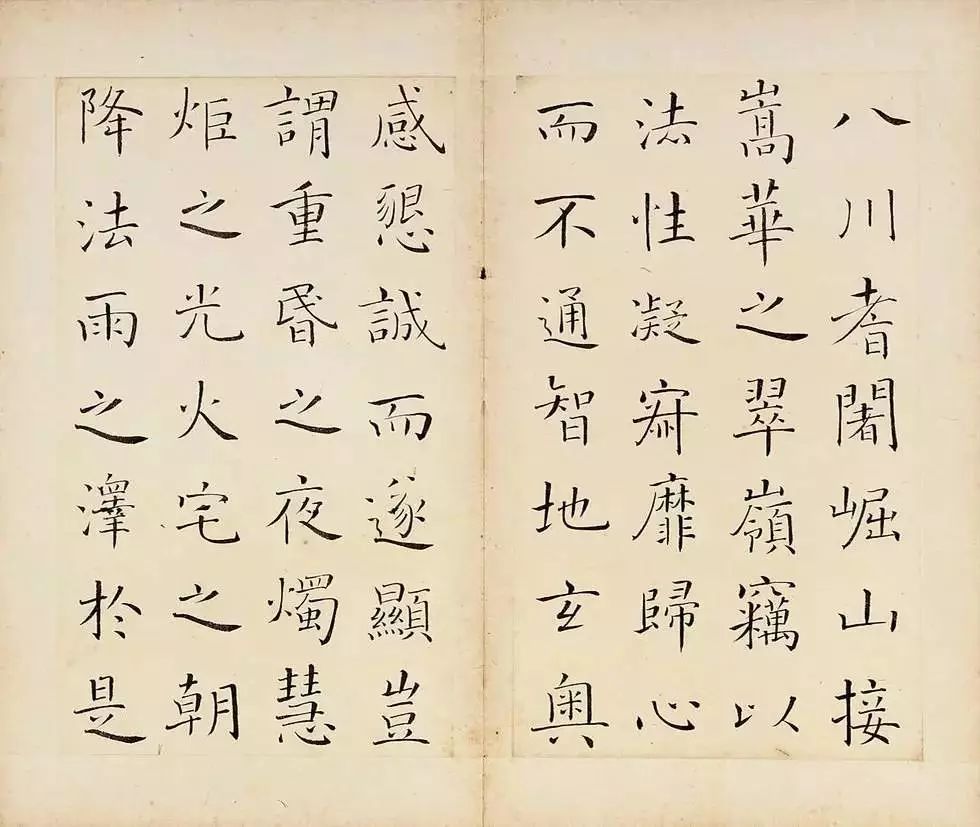 八川耆闍崛山接
嵩華之翠嶺竊以
法性凝寂靡歸心
而不通智地玄奧
感懇誠而遂顯豈
謂重昏之夜燭慧
炬之光火宅之朝
降法雨之澤於是